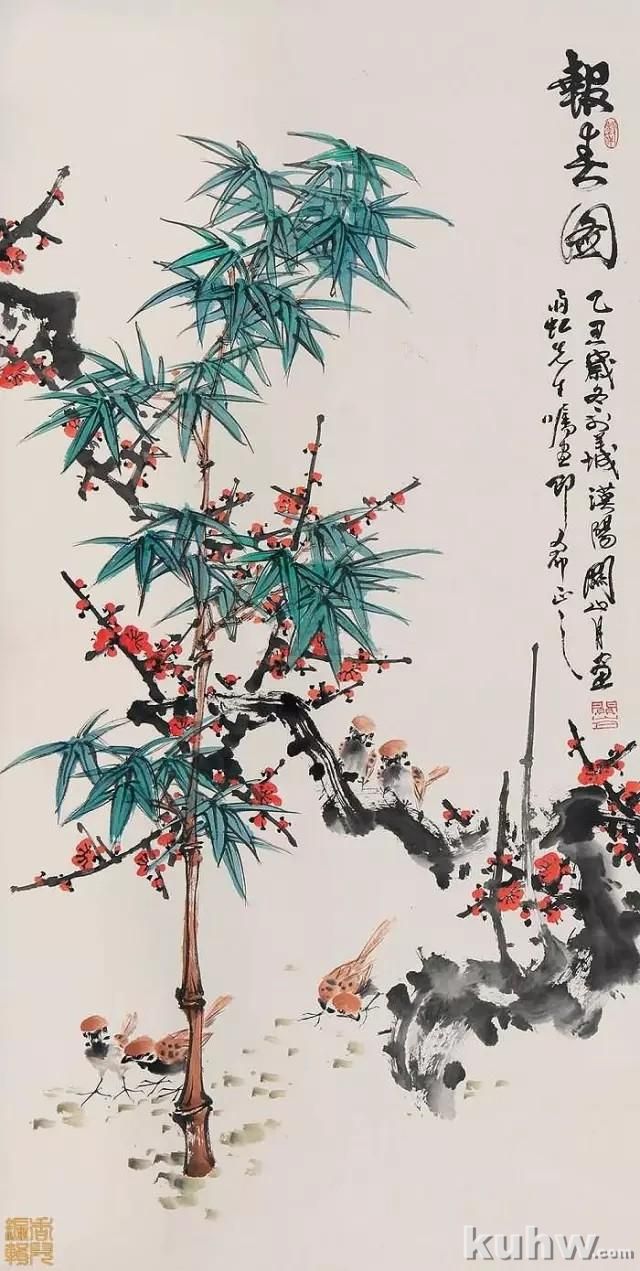 報春圖
乙丑歲冬於羊城漢陽關山月畫
先生囑畫即希正之
kuhw.com